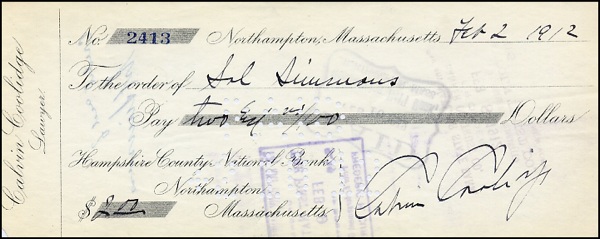 Calvin Coolidge
Lawyer
No. 2413 Northampton, Massachusetts Feb 2 1912
To the order of Sol Simmons
Pay two & no/100 Dollars
Hampshire County National Bank
Northampton
Massachusetts
$ 2.00 Calvin Coolidge